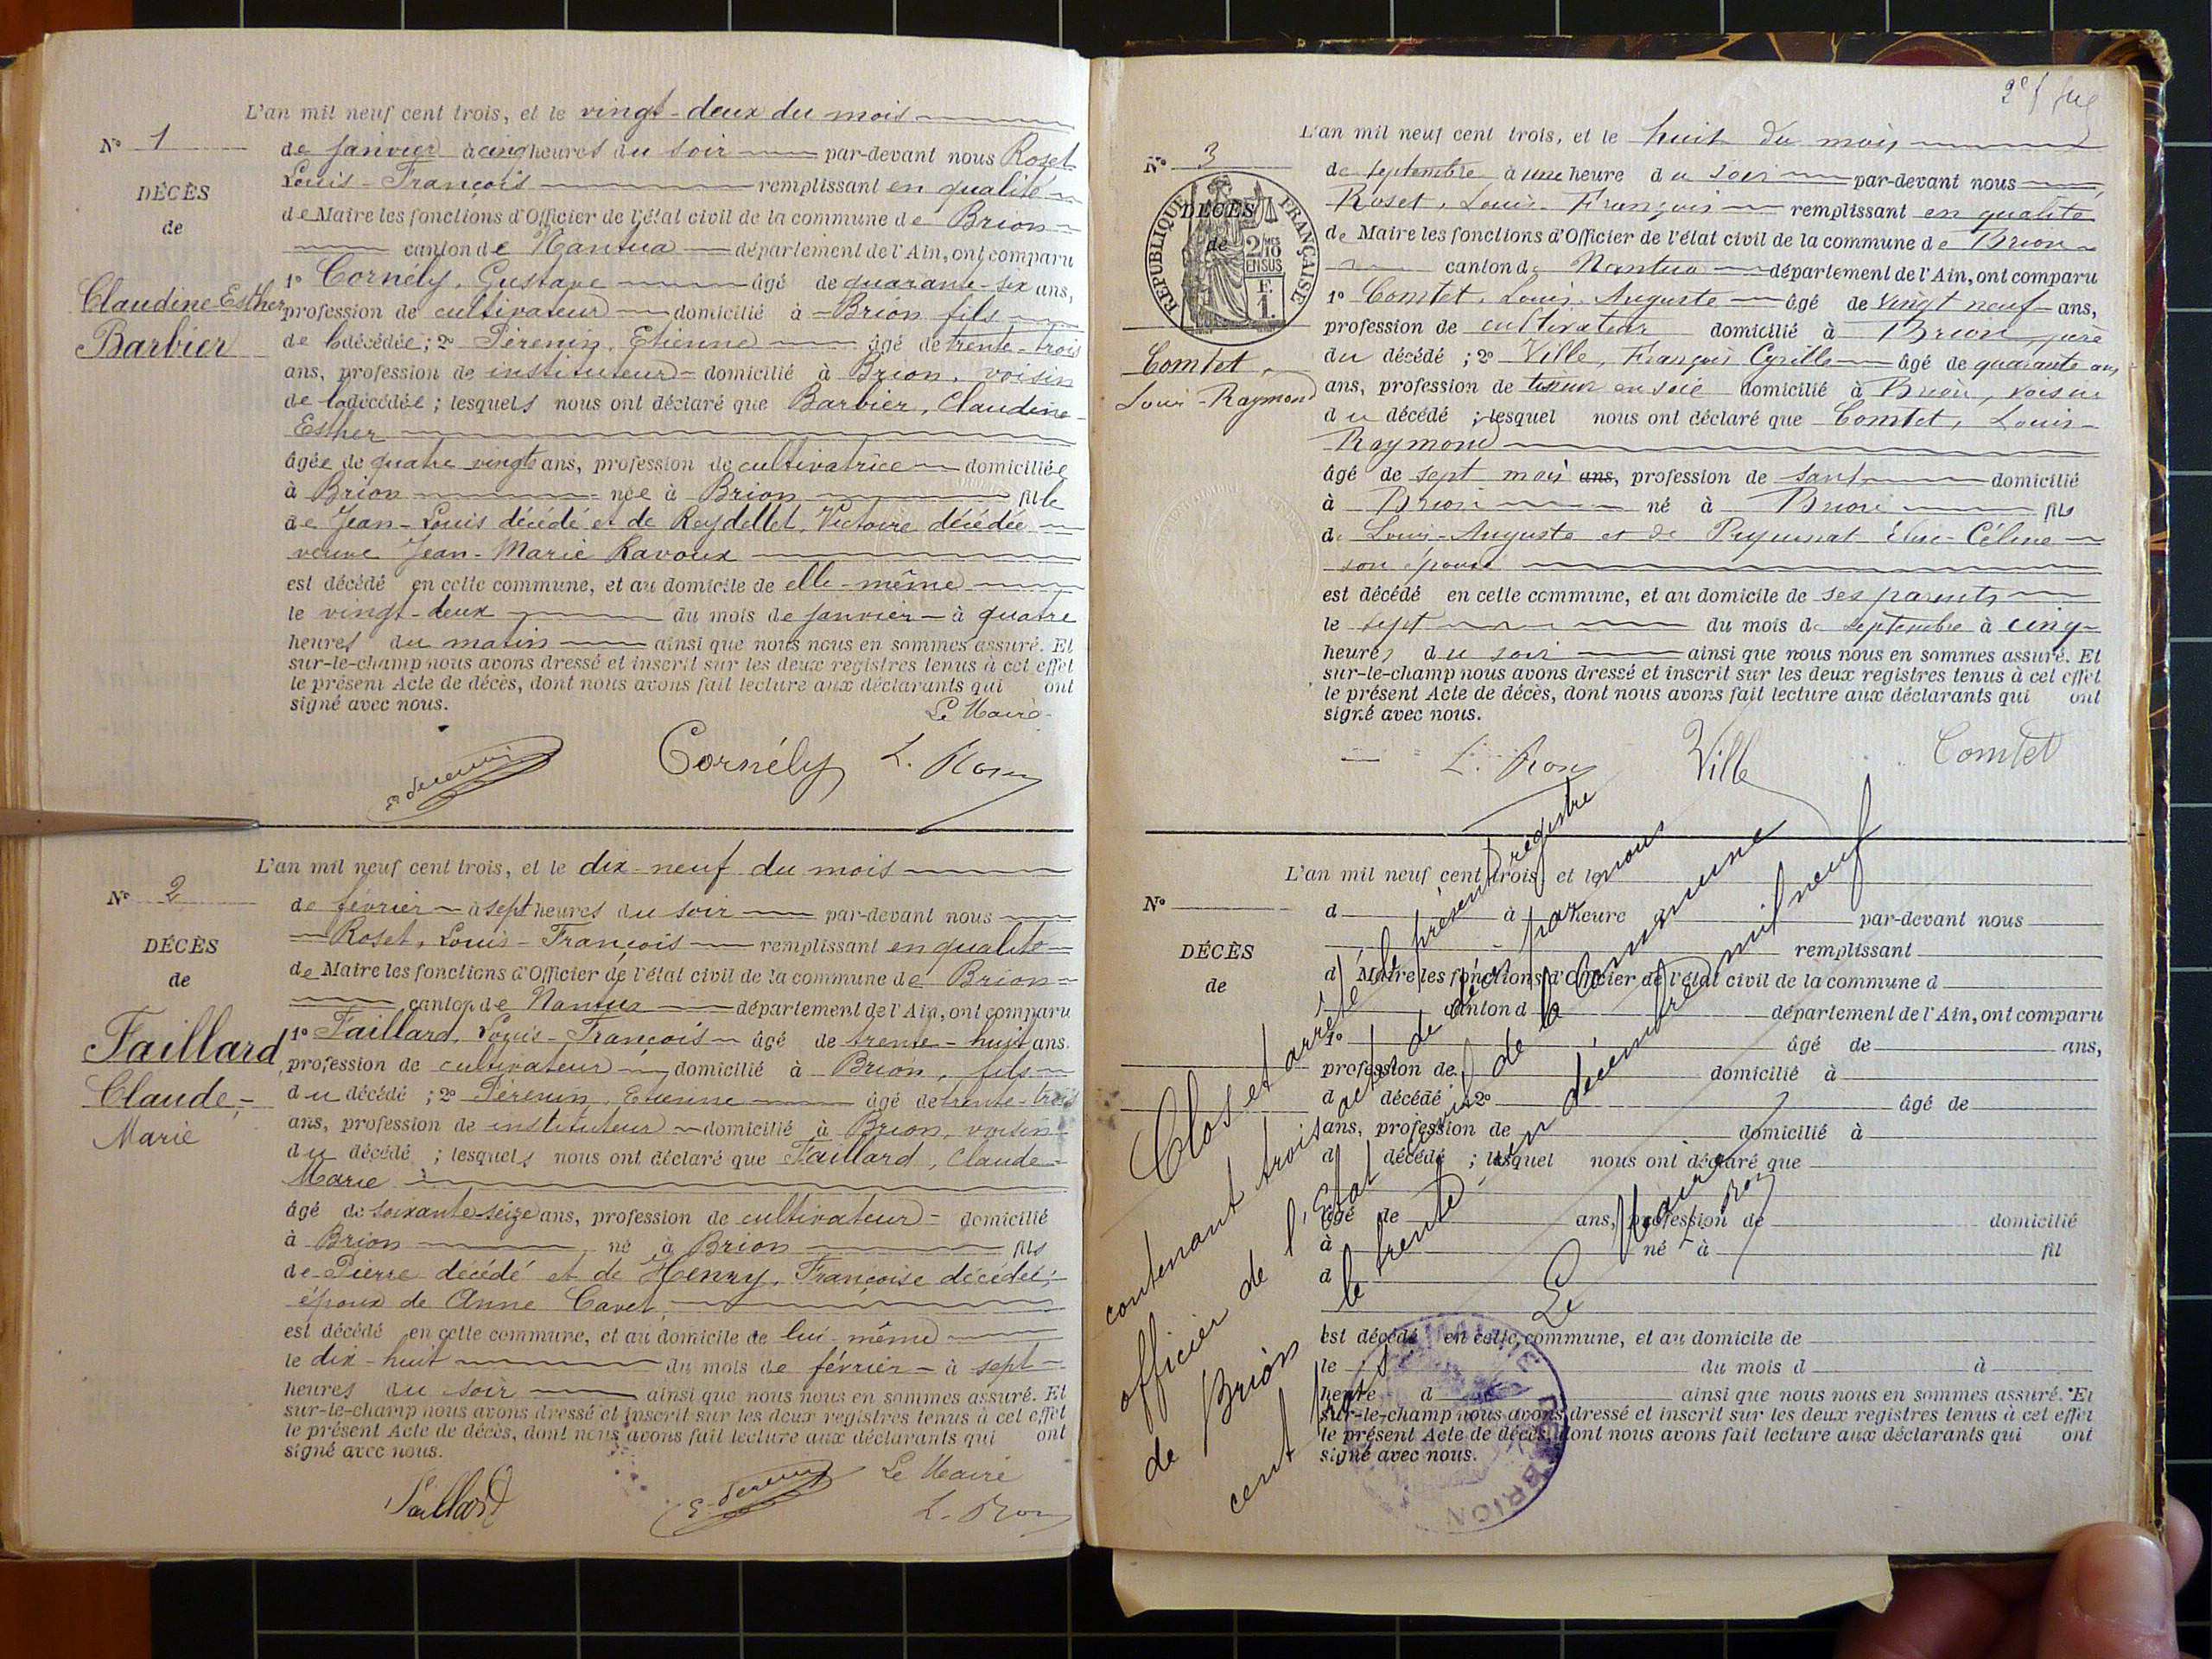 L'an mil neuf cent trois, et le vingt-deux du mois
N° 1
de janvier à cinq heures du soir par-devant nous Roset
Louis-François remplissant en qualité
DÉCÈS
de Maire les fonctions d'Officier de l'état civil de la commune de Brion
de
canton de Nantua département de l'Ain, ont comparu
1° Cornély, Gustave âgé de quarante-six ans,
Claudine-Esther
profession de cultivateur domicilié à Brion fils
Barbier
de la décédée ; 2° Pérenin, Etienne âgé de trente-trois
ans, profession de instituteur domicilié à Brion, voisin
de la décédée ; lesquels nous ont déclaré que Barbier, Claudine-
Esther
âgée de quatre vingts ans, profession de cultivatrice domiciliée
à Brion née à Brion fille
de Jean-Louis décédé et de Reydellet, Victoire décédée
veuve Jean-Marie Ravoux
est décédé en cette commune, et au domicile de elle-même
le vingt-deux du mois de janvier à quatre
heures du matin ainsi que nous nous en sommes assuré. Et
sur-le-champ nous avons dressé et inscrit sur les deux registres tenus à cet effet
le présent Acte de décès, dont nous avons fait lecture aux déclarants qui ont
signé avec nous.
Le Maire
Cornély L. Roset
L'an mil neuf cent trois, et le dix-neuf du mois
N° 2
de février à sept heures du soir par-devant nous
Roset, Louis-François remplissant en qualité
DÉCÈS
de Maire les fonctions d'Officier de l'état civil de la commune de Brion
de
canton de Nantua département de l'Ain, ont comparu
Faillard
1° Faillard, Louis-François âgé de trente-huit ans.
profession de cultivateur domicilié à Brion, fils
Claude-
du décédé ; 2° Pérenin, Etienne âgé de trente-trois
Marie
ans, profession de instituteur domicilié à Brion, voisin
du décédé ; lesquels nous ont déclaré que Faillard, Claude-
Marie
âgé de soixante seize ans, profession de cultivateur domicilié
à Brion né à Brion fils
de Pierre décédé et de Henry, Françoise décédée,
époux de Anne Cavet
est décédé en cette commune, et au domicile de lui-même
le dix-huit du mois de février à sept
heures du soir ainsi que nous nous en sommes assuré. Et
sur-le-champ nous avons dressé et inscrit sur les deux registres tenus à cet effet
le présent Acte de décès, dont nous avons fait lecture aux déclarants qui ont
signé avec nous.
Le Maire
Faillard E. Pérenin
L. Roset
L'an mil neuf cent trois, et le huit du mois
N° 3
de septembre à une heure du soir par-devant nous
Roset, Louis-François remplissant en qualité
DÉCÈS
de
RÉPUBLIQUE FRANÇAISE
2/10 MES EN SUS
F. 1.
de Maire les fonctions d'Officier de l'état civil de la commune de Brion
canton de Nantua département de l'Ain, ont comparu
1° Comtet, Louis-Auguste âgé de vingt neuf ans,
profession de cultivateur domicilié à Brion, père
Comtet,
Louis-Raymond
du décédé ; 2° Ville, François Cyrille âgé de quarante ans
ans, profession de tisseur en soie domicilié à Brion, voisin
du décédé ; lesquel nous ont déclaré que Comtet, Louis-
Raymond
âgé de sept mois ans, profession de sans domicilié
à Brion né à Brion fils
de Louis-Auguste et de Céline
son épouse
est décédé en cette commune, et au domicile de ses parents
le sept du mois de septembre à cinq
heures du soir ainsi que nous nous en sommes assuré. Et
sur-le-champ nous avons dressé et inscrit sur les deux registres tenus à cet effet
le présent Acte de décès, dont nous avons fait lecture aux déclarants qui ont
signé avec nous.
L. Roset Ville Comtet
L'an mil neuf cent trois, et le
N°
d à heure d par-devant nous
remplissant
DÉCÈS
d Maire les fonctions d'Officier de l'état civil de la commune d
de
canton d département de l'Ain, ont comparu
1° âgé de ans,
profession de domicilié à
d décédé ; 2° âgé de
ans, profession de domicilié à
d décédé ; lesquel nous ont déclaré que
âgé de ans, profession de domicilié
à né à fil
d
est décédé en cette commune, et au domicile de
le du mois d à
heure d ainsi que nous nous en sommes assuré. Et
sur-le-champ nous avons dressé et inscrit sur les deux registres tenus à cet effet
le présent Acte de décès, dont nous avons fait lecture aux déclarants qui ont
signé avec nous.
Clos et arrêté le présent registre
contenant trois actes de décès par nous
officier de l'Etat civil de la commune
de Brion le trente un décembre mil neuf
cent trois
Le Maire
L. Roset
MAIRIE DE BRION